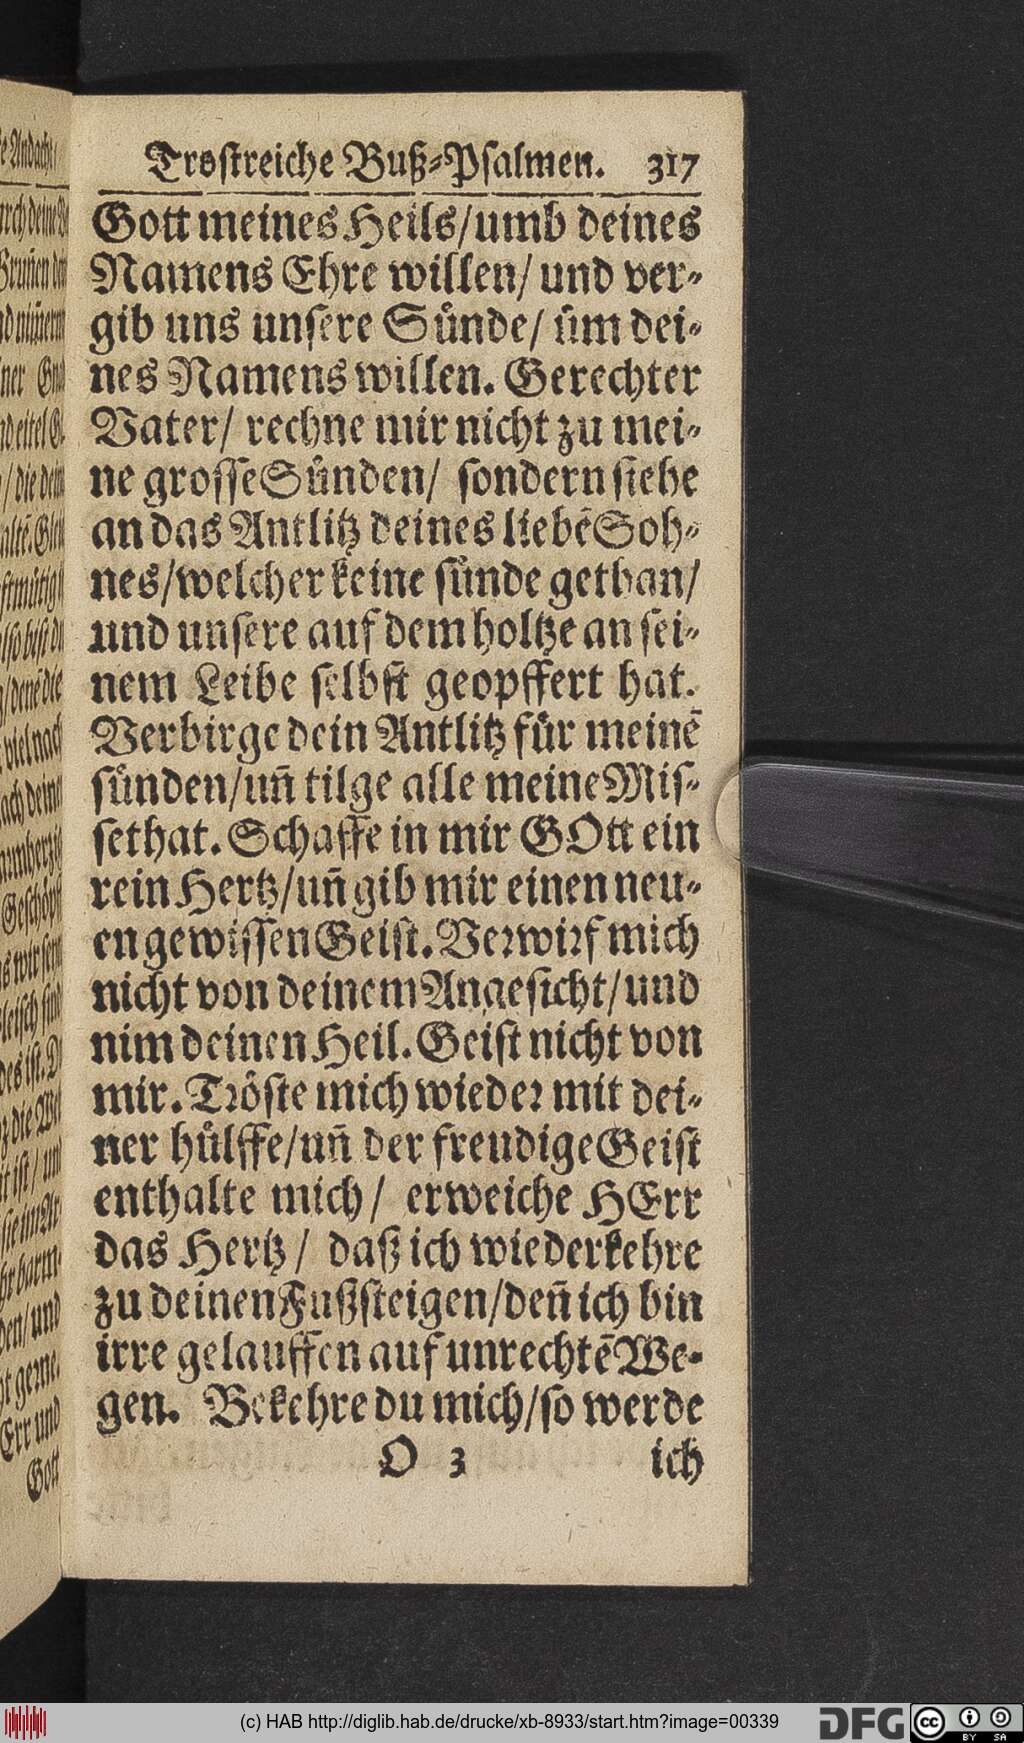 Trostreiche Buß-Psalmen. 317
Gott meines Heils/umb deines
Namens Ehre willen/ und ver-
gib uns unsere Sünde/ üm dei-
nes Namens willen. Gerechter
Vater/ rechne mir nicht zu mei-
ne grosse Sünden/ sondern siehe
an das Antlitz deines liebē Soh-
nes/welcher keine sünde gethan/
und unsere auf dem holtze an sei-
nem Leibe selbst geopffert hat.
Verbirge dein Antlitz für meinē
sünden/uñ tilge alle meine Mis-
sethat. Schaffe in mir GOtt ein
rein Hertz/uñ gib mir einen neu-
en gewissen Geist. Verwirf mich
nicht von deinem Angesicht/und
nim deinen Heil. Geist nicht von
mir. Tröste mich wieder mit dei-
ner hülffe/uñ der freudige Geist
enthalte mich/ erweiche HErr
das Hertz/ daß ich wiederkehre
zu deinen Fußsteigen/deñ ich bin
irre gelauffen auf unrechtē We-
gen. Bekehre du mich/so werde
O 3 ich
(c) HAB http://diglib.hab.de/drucke/xb-8933/start.htm?image=00339
DFG cc BY SA